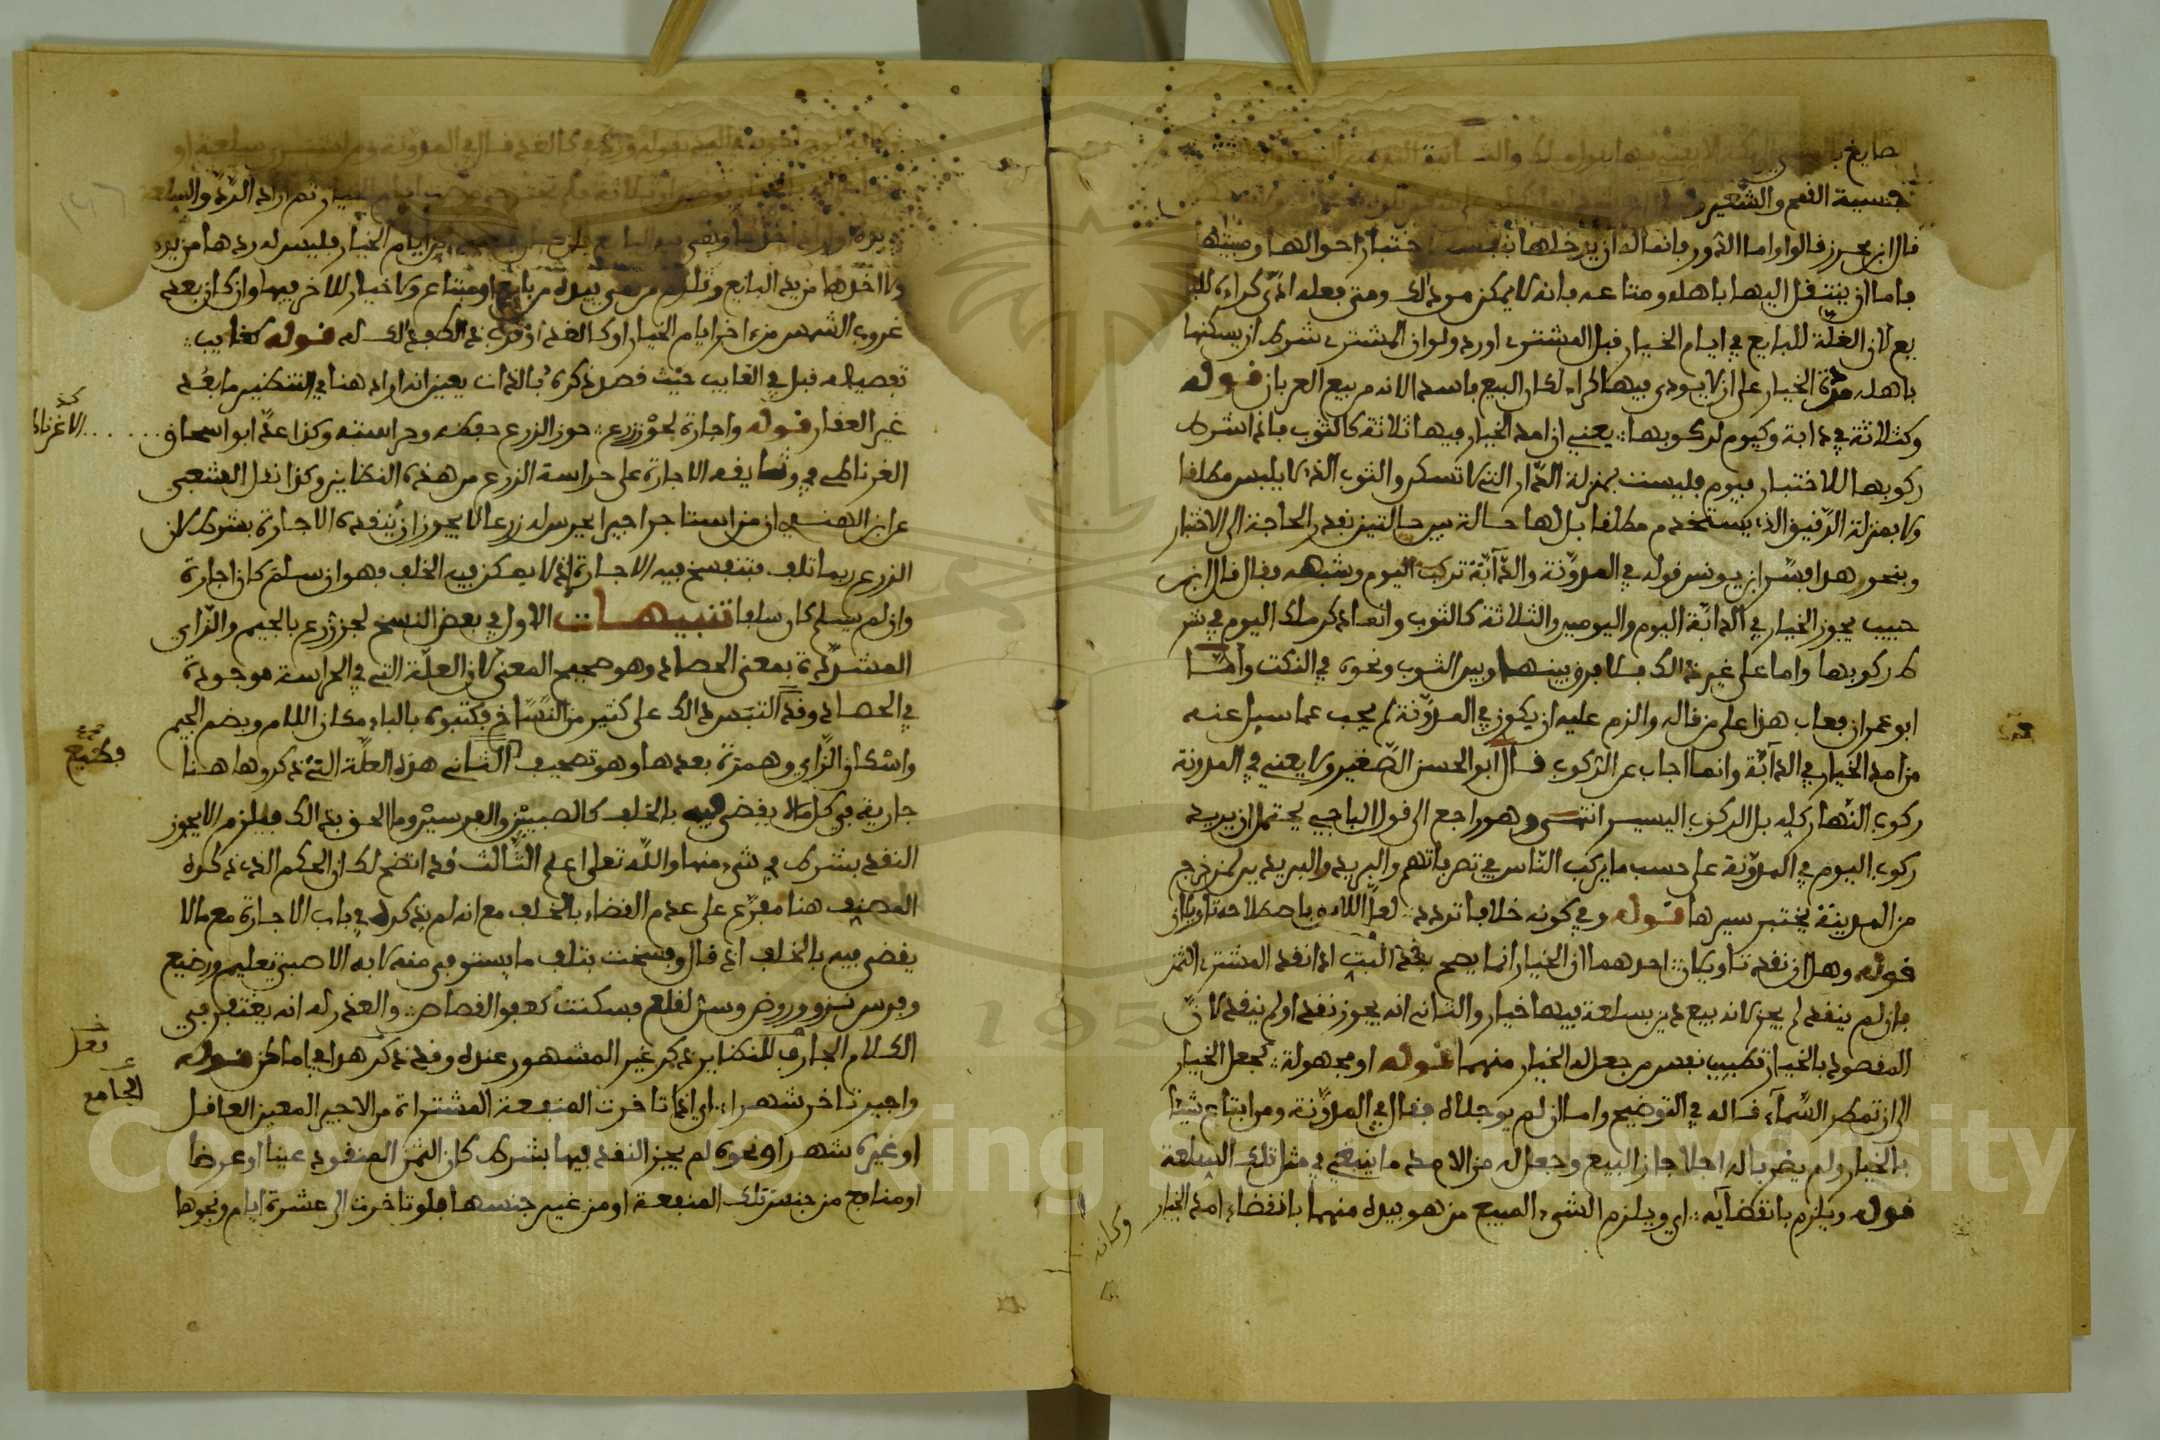 جنسية القمح والشعير
قال ابن محرز قالوا واما الدور فانما له ان يدخلها بنفسه لاختبار احوالها ومبيتها
فاما ان ينتقل اليها باهله ومتاعه فانه لا يمكن من ذلك ومتى فعله ادّى كراءه للبا
يع لان الغلّة للبايع في ايام الخيار قبل المشتري اورد ولو ان المشتري شرط ان يسكنها
باهله مدة الخيار على ان لا يودي فيها كراء لكان البيع فاسدا لانه من بيع العربان قوله
وكثلاثة في دابة وكيوم لركوبها يعني ان امد الخيار فيها ثلاثة كالثوب فاذا شرط
ركوبها للاختبار فيوم فليست بمنزلة الدّار التي لا تسكن والثوب الذي لا يلبس مطلقا
ولا بمنزلة الرّقيق الذي يستخدم مطلقا بل لها حالة بين حالتين بقدر الحاجة الى الاختبار
وبنحو هذا فسّر ابن يونس قوله في المدوّنة والدّآبّة تركب اليوم وشبهه فقال قال ابن
حبيب يجوز الخيار في الدابّة اليوم واليومين والثلاثة كالثوب وانما ذكر ملك اليوم في شر
ط ركوبها واما على غير ذلك فلا فرق بينها وبين الثوب ونحوه في النكت وأمّا
ابو عمران فعاب هذا على من قاله والزم عليه ان يكون في المدوّنة لم يجب عما سيل عنه
من امد الخيار في الدآبّة وانما اجاب عن الركوب قال ابو الحسن الصّغير ولا يعني في المدونة
ركوب النّهار كله بل الركوب اليسير انتهى وهو راجع الى قول الباجي يحتمل ان يريد
ركوب اليوم في المدوّنة على حسب ما يركب النّاس في تصرفاتهم والبريد والبريدين لمن خرج
من المدينة يختبر سيرها قوله وفي كونه خلافا تردد لعلّ اللايق باصطلاحه تاويلان
قوله وهل ان نقد تاويلان احدهما ان الخيار انما يصح بعد البتّ اذا نقد المشتري الثمن
فان لم ينقد لم يجز لانه بيع دين بسلعة فيها خيار والثاني انه يجوز نقد او لم ينقد لانّ
المقصود بالخيار تطييب نفس من جعل له الخيار منهما قوله او مجهولة كجعل الخيار
الى ان تمطر السّمآء قاله في التوضيح واما ان لم يوجلاه فقال في المدوّنة ومن ابتاع شيئا
بالخيار ولم يضربا له اجلا جاز البيع وجعل له من الامد ما ينبغي في مثل تلك السلعة
قوله ويلزم بانقضآيه اي ويلزم الشيء المبيع من هو بيده منهما بانقضاء امد الخيار
وكانه
ولا اخذها من يد البايع وتلزم من هي بيده من بايع او مبتاع ولا خيار للاخر فيها وان كان بعد
غروب الشمس من اخر ايام الخيار او كالغد او قرب ذلك فذلك له قوله كغايب
تفصيله قبل في الغايب حيث فصل ذكره بالذات يعين انه اراد هنا في التنظير ما بعُد
غير العقار قوله واجارة لحوْز زرع حوز الزرع حفظه وحراسته وكذا عدّ ابو اسحاق
الغرناطي في وثايقه الاجارة على حراسة الزرع من هذه النظاير وكذا نقل المشعبي
عن ابن الهندي ان من استاجر اجيرا يحرس له زرعا لا يجوز ان يُنقده الاجارة بشرط لان
الزرع ربما تلف فتنفسخ فيه الاجارة إذ لا يمكن فيه الخلف فهو ان سلم كان اجارة
وان لم يسلم كان سلفا تنبيهات الاول في بعض النسخ لجزّ زرع بالجيم والزّاي
المشدّدة بمعنى الحصاد وهو صحيح المعنى لان العلّة التي في الحراسة موجودة
في الحصاد وقد التبس ذلك على كثير من النّسّاخ فكتبوه بالباء مكان اللام وبضم الجيم
واسكان الزّاي وهمزة بعدها وهو تصحيف الثاني هذه العلّة التي ذكروها هنا
جارية في كل مالا يقضى فيه بالخلف كالصبيْن والفرسيْن وما الحق بذلك فيلزم الا يجوز
النقد بشرط في شيء منها والله تعلى اعلم الثّالث قد اتضح لك ان الحكم الذي ذكره
المصنف هنا مفرّع على عدم القضاء بالخلف مع انه لم يذكره في باب الاجارة مع مالا
يقضى فيه بالخلف اذ قال وفسخت بتلف ما يستوفى منه لا به الا صبي تعليم ورضيع
وفرس نزو وروض وسنّ لقلع فسكنت كعفو القصاص والعذر له انه يغتفر في
الكلام الجارّ للنظاير ذكر غير المشهور عنده وقد ذكر هذا في اماكن قوله
واجير تاخر شهرا اي اذا تاخرت المنفعة المشتراة من الاجير المعين العاقل
او غيره شهرا ونحوه لم يجز النقد فيها بشرط كان الثمن المنقود عينا او عرضا
او منافع من جنس تلك المنفعة او من غير جنسها فلو تاخرت الى عشرة ايام ونحوها
الجامع